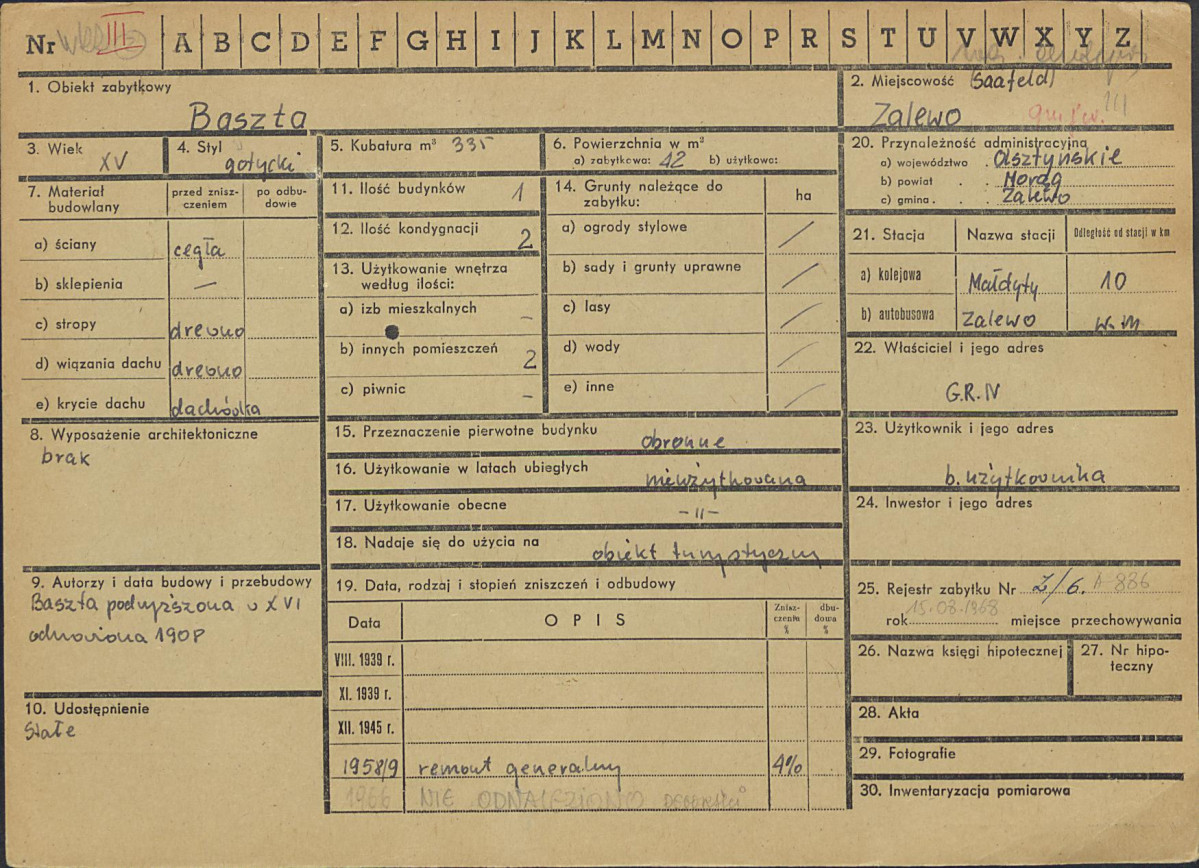 Nr III A B C D E F G H I J K L M N O P R S T U V W X Y Z
1. Obiekt zabytkowy
Baszta
2. Miejscowość (Saafeld)
Zalewo
3. Wiek
XV
4. Styl
gotycki
5. Kubatura m³ 335
6. Powierzchnia w m²
a) zabytkowa: 42 b) użytkowa:
7. Materiał budowlany
przed zniszczeniem
po odbudowie
a) ściany cegła
b) sklepienia —
c) stropy drewno
d) wiązania dachu drewno
e) krycie dachu dachówka
8. Wyposażenie architektoniczne
brak
9. Autorzy i data budowy i przebudowy
Baszta podwyższona w XVI
odnowiona 1908
10. Udostępnienie
Stałe
11. Ilość budynków 1
12. Ilość kondygnacji 2
13. Użytkowanie wnętrza
według ilości:
a) izb mieszkalnych –
b) innych pomieszczeń 2
c) piwnic –
14. Grunty należące do
zabytku:
ha
a) ogrody stylowe /
b) sady i grunty uprawne /
c) lasy /
d) wody /
e) inne /
15. Przeznaczenie pierwotne budynku obronne
16. Użytkowanie w latach ubiegłych nieużytkowana
17. Użytkowanie obecne –"–
18. Nadaje się do użycia na obiekt turystyczny
19. Data, rodzaj i stopień zniszczeń i odbudowy
Data OPIS Zniszczenia % dbudowa %
VIII. 1939 r.
XI. 1939 r.
XII. 1945 r.
1958/9 remont generalny 4%
1966 NIE ODNALEZIONO
20. Przynależność administracyjna
a) województwo . Olsztyńskie
b) powiat . . Morąg
c) gmina . . Zalewo
21. Stacja Nazwa stacji Odległość od stacji w km
a) kolejowa Małdyty 10
b) autobusowa Zalewo w. m
22. Właściciel i jego adres
G.R.IV
23. Użytkownik i jego adres
b. użytkownika
24. Inwestor i jego adres
25. Rejestr zabytku Nr Z/6. A-886
rok 15.08.1968 miejsce przechowywania
26. Nazwa księgi hipotecznej
27. Nr hipoteczny
28. Akta
29. Fotografie
30. Inwentaryzacja pomiarowa